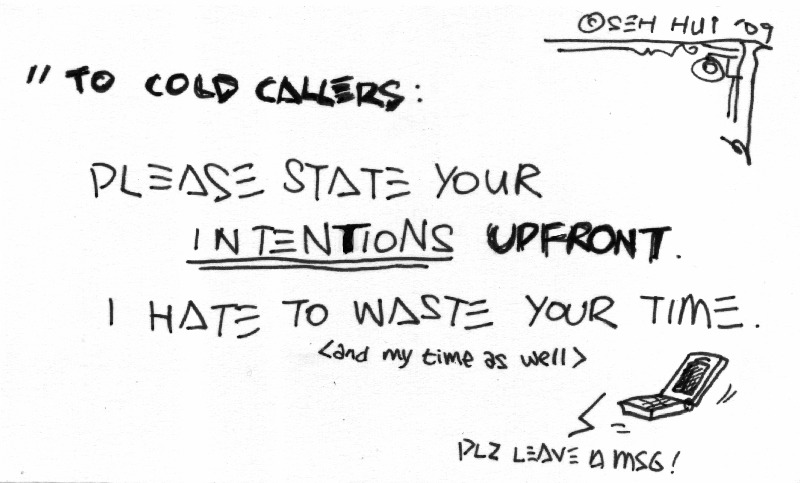 ©SEH HUI '09
"TO COLD CALLERS:
PLEASE STATE YOUR
INTENTIONS UPFRONT.
I HATE TO WASTE YOUR TIME.
<and my time as well>
PLZ LEAVE A MSG!